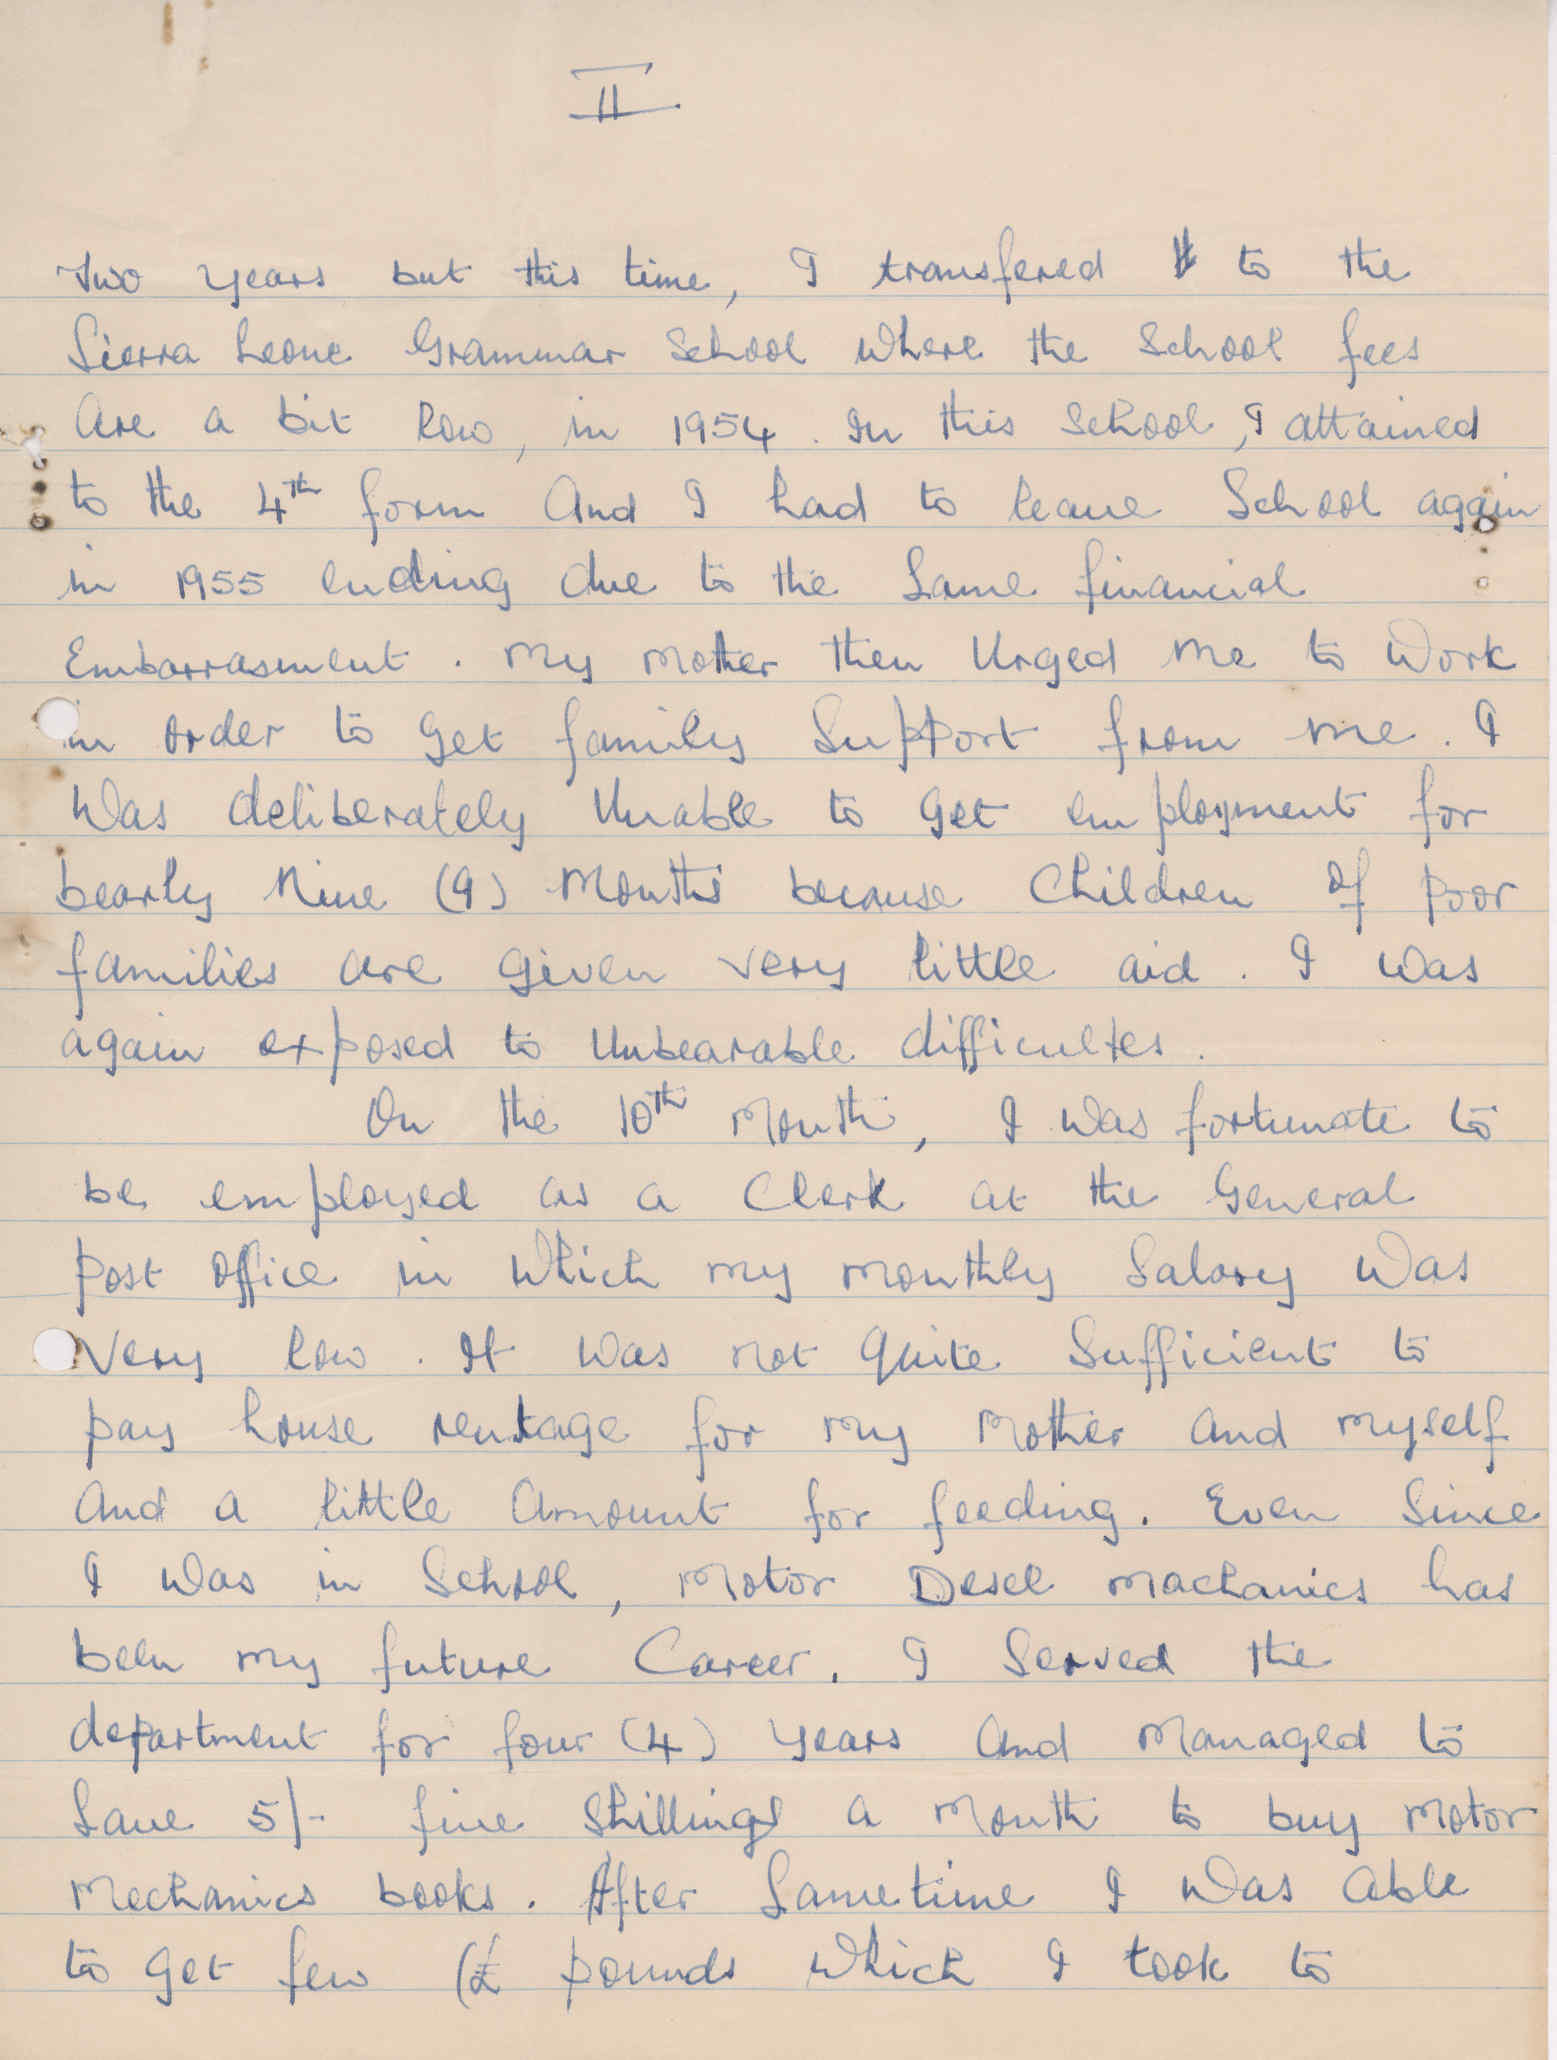 II
Two years but this time, I transfered to the
Sierra Leone Grammar School where the School fees
are a bit low, in 1954. In this School, I attained
to the 4th form and I had to leave School again
in 1955 ending due to the same financial
Embarrasment. My mother then Urged me to work
in order to get family Support from me. I
was deliberately Unable to get employment for
bearly Nine (9) Months because Children of poor
families are given very little aid. I was
again exposed to Unbearable difficultes.
On the 10th Month, I was fortunate to
be employed as a Clerk at the General
post office in which my monthly Salary was
very low. It was not quite Sufficient to
pay house rentage for my Mother and myself
and a little amount for feeding. Even Since
I was in School, Motor Desel Machanics has
been my future Career. I Served the
department for four (4) years and Managed to
Save 5/- five Shillings a Month to buy Motor
Mechanics books. After Sametime I was able
to get few (£ pounds which I took to